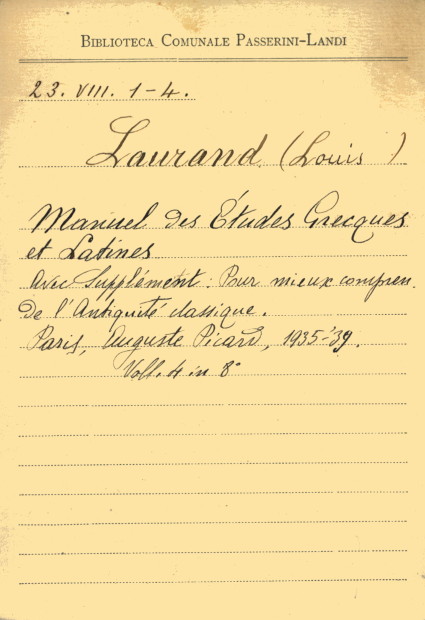 BIBLIOTECA COMUNALE PASSERINI-LANDI
23. VIII. 1-4.
Laurand (Louis )
Manuel des Études Grecques
et Latines
Avec Supplément: Pour mieux compren
de l'Antiquité classique.
Paris, Auguste Picard, 1935-'39.
Voll. 4 in 8°